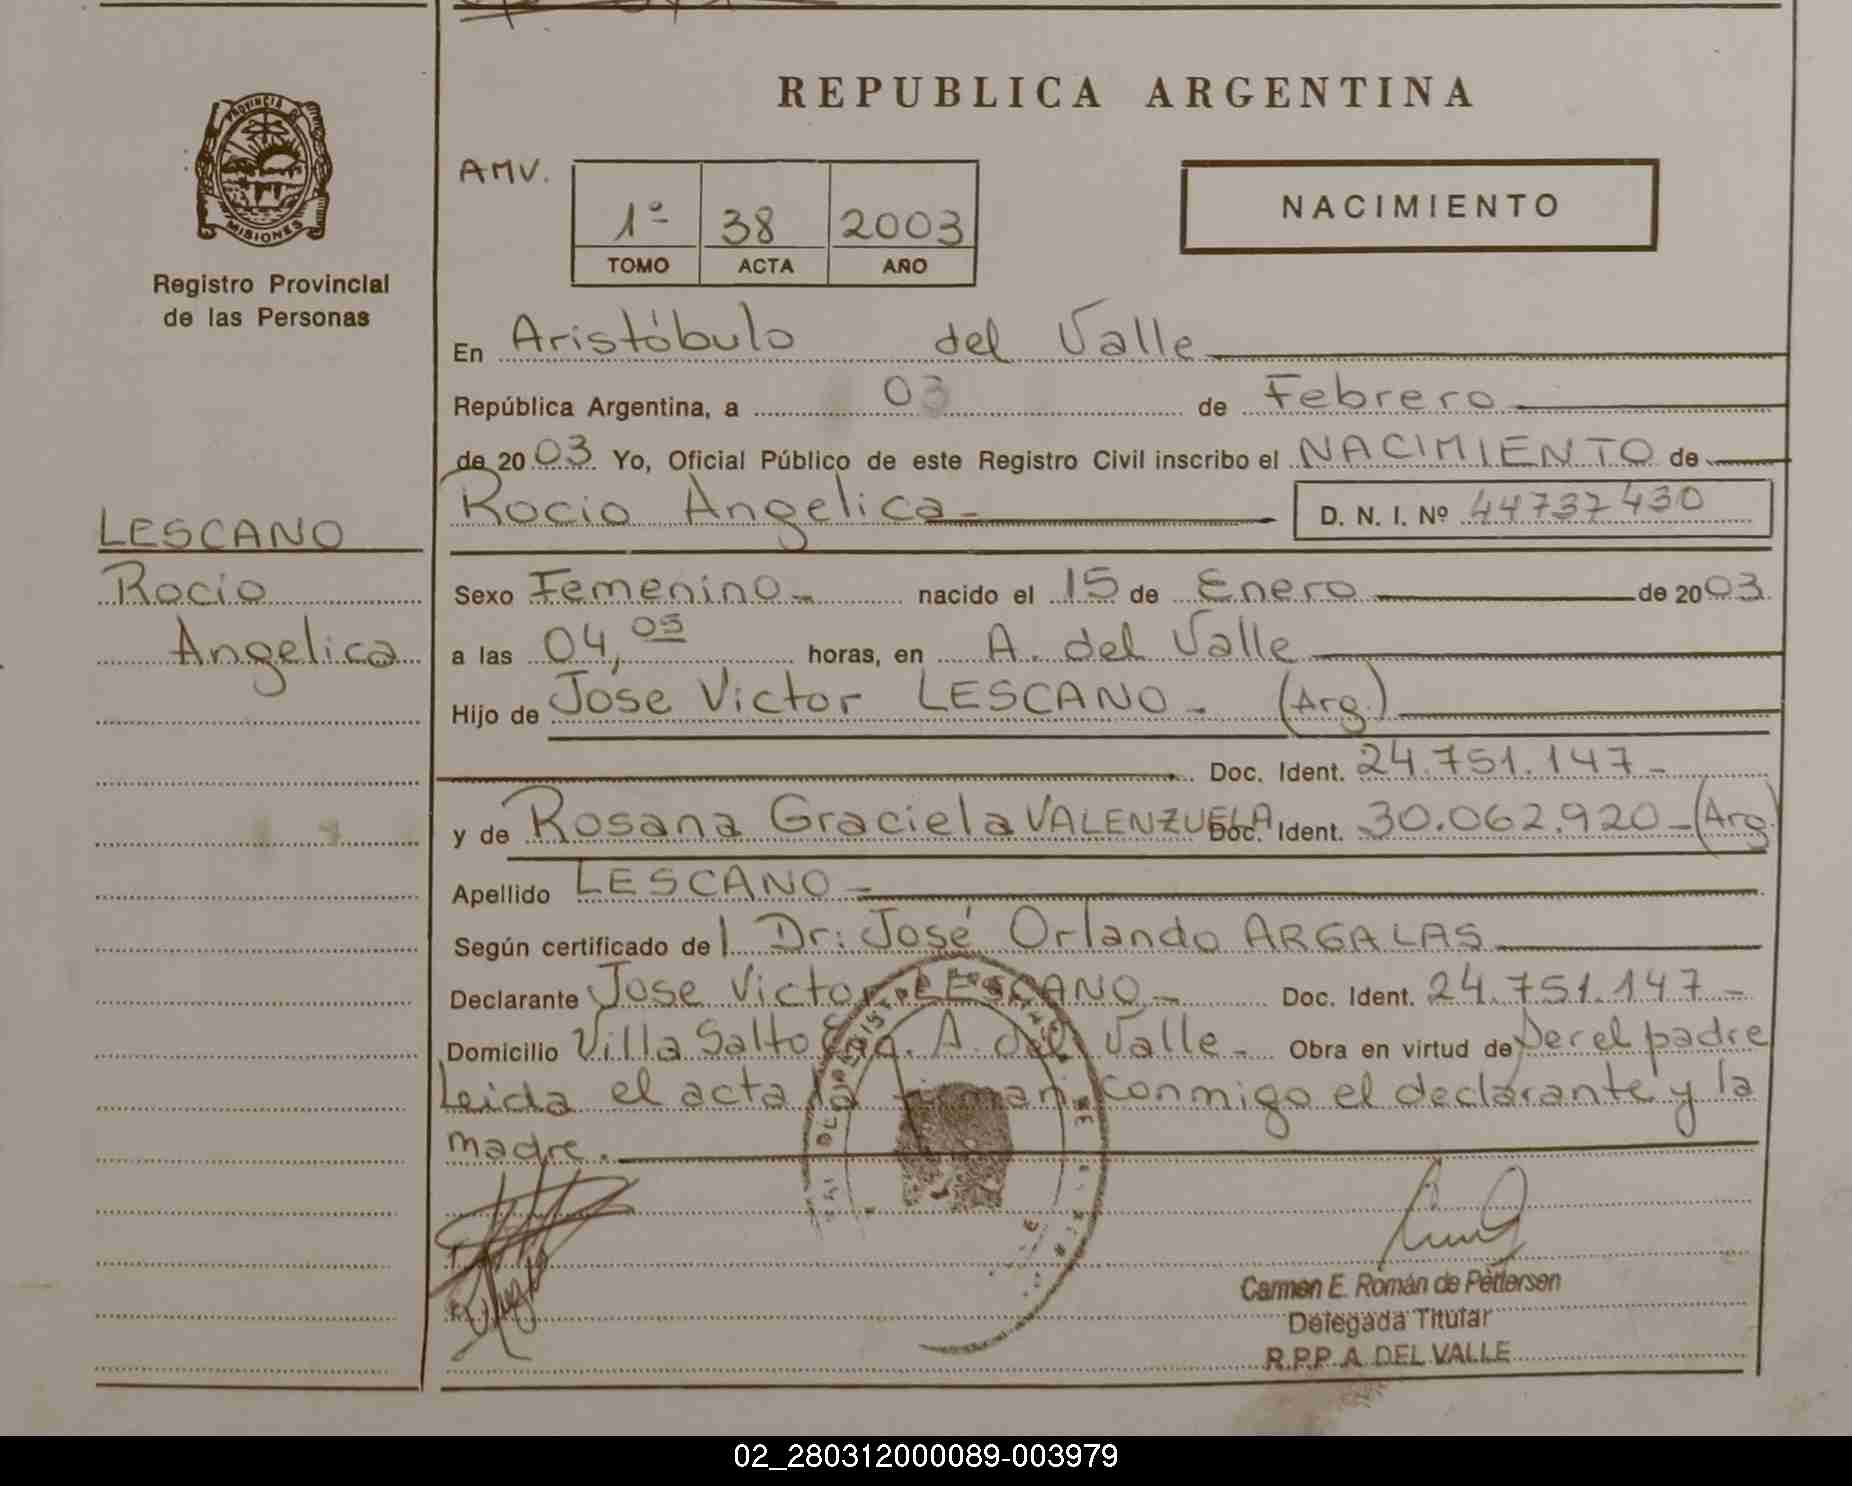 REPUBLICA ARGENTINA
PROVINCIA DE
MISIONES
Registro Provincial
de las Personas
AMV.
1º 38 2003
TOMO ACTA AÑO
NACIMIENTO
En Aristóbulo del Valle
República Argentina, a 03 de Febrero
de 2003 Yo, Oficial Público de este Registro Civil inscribo el NACIMIENTO de
Rocio Angelica D. N. I. Nº 44737430
LESCANO
Rocio
Angelica
Sexo Femenino nacido el 15 de Enero de 2003
a las 04,05 horas, en A. del Valle
Hijo de Jose Victor LESCANO. (Arg.)
Doc. Ident. 24.751.147
y de Rosana Graciela VALENZUELA Doc. Ident. 30.062.920 (Arg.)
Apellido LESCANO
Según certificado del Dr: José Orlando ARGALAS
Declarante Jose Victor LESCANO Doc. Ident. 24.751.147
Domicilio Villa Salto Enc. A. del Valle Obra en virtud de ser el padre
Leida el acta la firman conmigo el declarante y la
madre.
Carmen E. Román de Pettersen
Delegada Titular
R.P.P. A. DEL VALLE
02_280312000089-003979